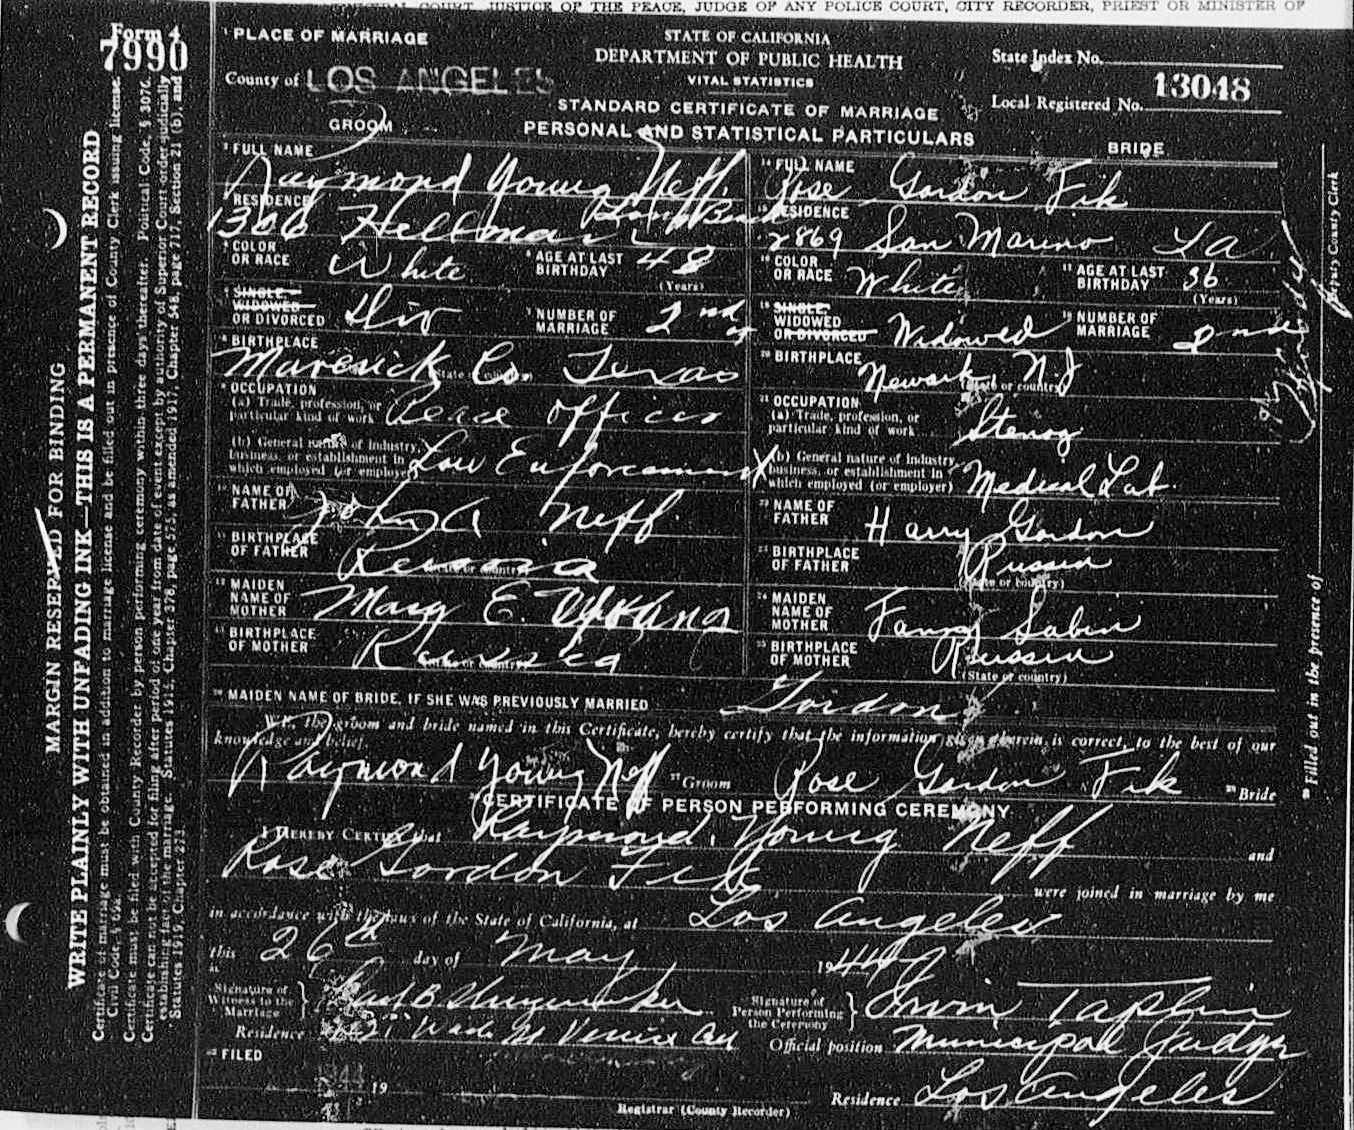 COURT, JUSTICE OF THE PEACE, JUDGE OF ANY POLICE COURT, CITY RECORDER, PRIEST OR MINISTER OF
Form 4
7990
MARGIN RESERVED FOR BINDING
WRITE PLAINLY WITH UNFADING INK—THIS IS A PERMANENT RECORD
Certificate of marriage must be obtained in addition to marriage license and be filled out in presence of County Clerk issuing license.
Civil Code, § 69a.
Certificate must be filed with County Recorder by person performing ceremony within three days thereafter. Political Code, § 3076.
Certificate can not be accepted for filing after period of one year from date of event except by authority of Superior Court order judicially
establishing fact of the marriage. Statutes 1915, Chapter 378, page 575, as amended 1917, Chapter 548, page 717, Section 21 (b), and
Statutes 1919, Chapter 273.
1 PLACE OF MARRIAGE
County of LOS ANGELES
STATE OF CALIFORNIA
DEPARTMENT OF PUBLIC HEALTH
VITAL STATISTICS
STANDARD CERTIFICATE OF MARRIAGE
State Index No.
Local Registered No. 13048
PERSONAL AND STATISTICAL PARTICULARS
GROOM
FULL NAME
Raymond Young Neff
RESIDENCE
1306 Hellman Long Beach
COLOR OR RACE White
AGE AT LAST BIRTHDAY 48
(Years)
SINGLE, WIDOWED OR DIVORCED Div
NUMBER OF MARRIAGE 2nd
BIRTHPLACE
Maverick Co. Texas
(State or country)
OCCUPATION
(a) Trade, profession, or particular kind of work Peace Officer
(b) General nature of industry, business, or establishment in which employed (or employer) Law Enforcement
NAME OF FATHER John A Neff
BIRTHPLACE OF FATHER Russia
(State or country)
MAIDEN NAME OF MOTHER Mary E. Young
BIRTHPLACE OF MOTHER Russia
(State or country)
BRIDE
14 FULL NAME
Rose Gordon Fik
RESIDENCE
2869 San Marino LA
COLOR OR RACE White
AGE AT LAST BIRTHDAY 36
(Years)
SINGLE, WIDOWED OR DIVORCED Widowed
NUMBER OF MARRIAGE 2nd
20 BIRTHPLACE Newark N.J
(State or country)
21 OCCUPATION
(a) Trade, profession, or particular kind of work Stenog
(b) General nature of industry, business, or establishment in which employed (or employer) Medical Lab.
NAME OF FATHER Harry Gordon
BIRTHPLACE OF FATHER Russia
(State or country)
MAIDEN NAME OF MOTHER Fanny Sabin
BIRTHPLACE OF MOTHER Russia
(State or country)
MAIDEN NAME OF BRIDE, IF SHE WAS PREVIOUSLY MARRIED Gordon
We, the groom and bride named in this Certificate, hereby certify that the information given therein is correct, to the best of our
knowledge and belief.
Raymond Young Neff Groom Rose Gordon Fik Bride
CERTIFICATE OF PERSON PERFORMING CEREMONY
I HEREBY CERTIFY that Raymond Young Neff and
Rose Gordon Fik were joined in marriage by me
in accordance with the laws of the State of California, at Los Angeles
this 26th day of May 1944
Signature of Witness to the Marriage
Residence Venice Cal
Signature of Person Performing the Ceremony Irvin Taplin
Official position Municipal Judge
Residence Los Angeles
FILED
1944 19
Registrar (County Recorder)
Filled out in the presence of
Deputy County Clerk